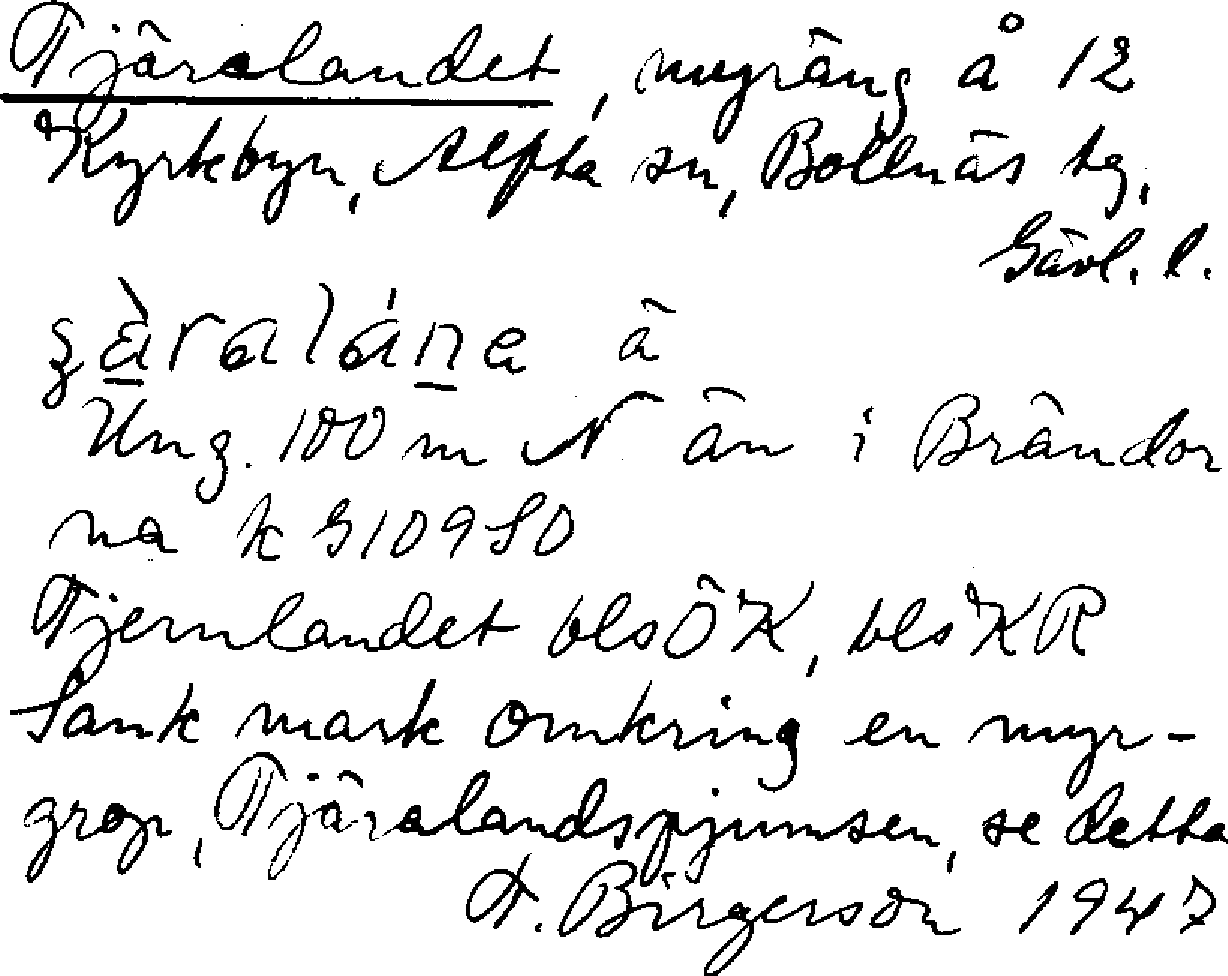 Tjäralandet, myräng å 12
Kyrkbyn, Alfta sn, Bollnäs tg,
Gävl. l.
ʒàralánɐ ä
Ung. 100 m N än i Brändor
na k G109SO
Tjernlandet blsÖK, blsKR
Sank mark omkring en myr-
grop, Tjäralandspjumsen, se detta
T. Birgerson 1947